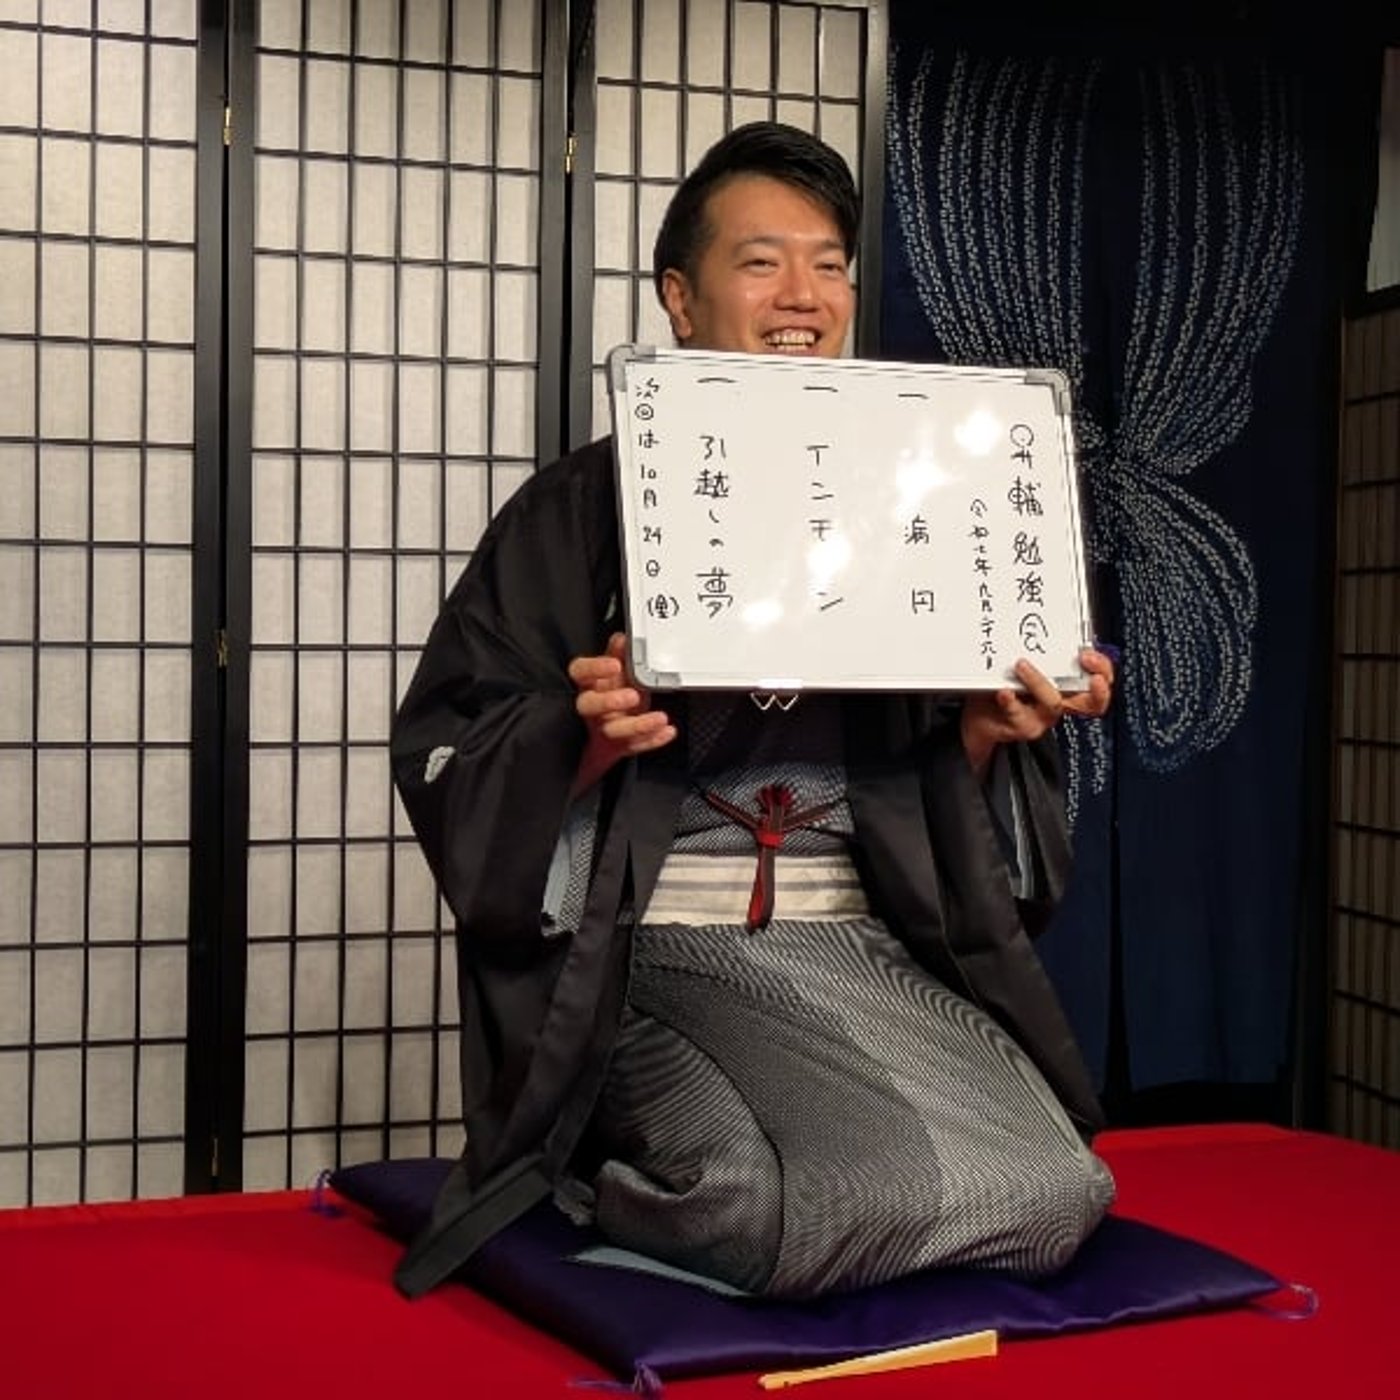 昇輔勉強会
令和七年九月二十六日
一 病円
一 インモラン
一 引越しの夢
次回は10月24日(金)